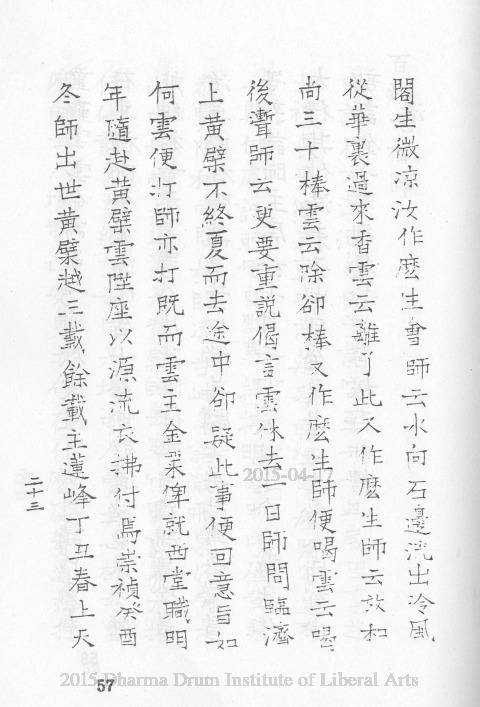 閣生微涼汝作麼生會師云水向石邊流出冷風
從華裏過來香雲云離了此又作麼生師云放和
尚三十棒雲云除卻棒又作麼生師便喝雲云喝
後漸師云更要重說偈言雲休去一日師問臨濟
上黃檗不終夏而去途中卻疑此事便回意旨如
何雲便打師亦打既而雲主金粟俾就西堂職明
年隨赴黃檗雲陞座以源流衣拂付焉崇禎癸酉
冬師出世黃檗越三載餘載主蓮峰丁丑春上天
二十三
2015-04-17
57
2015 Dharma Drum Institute of Liberal Arts